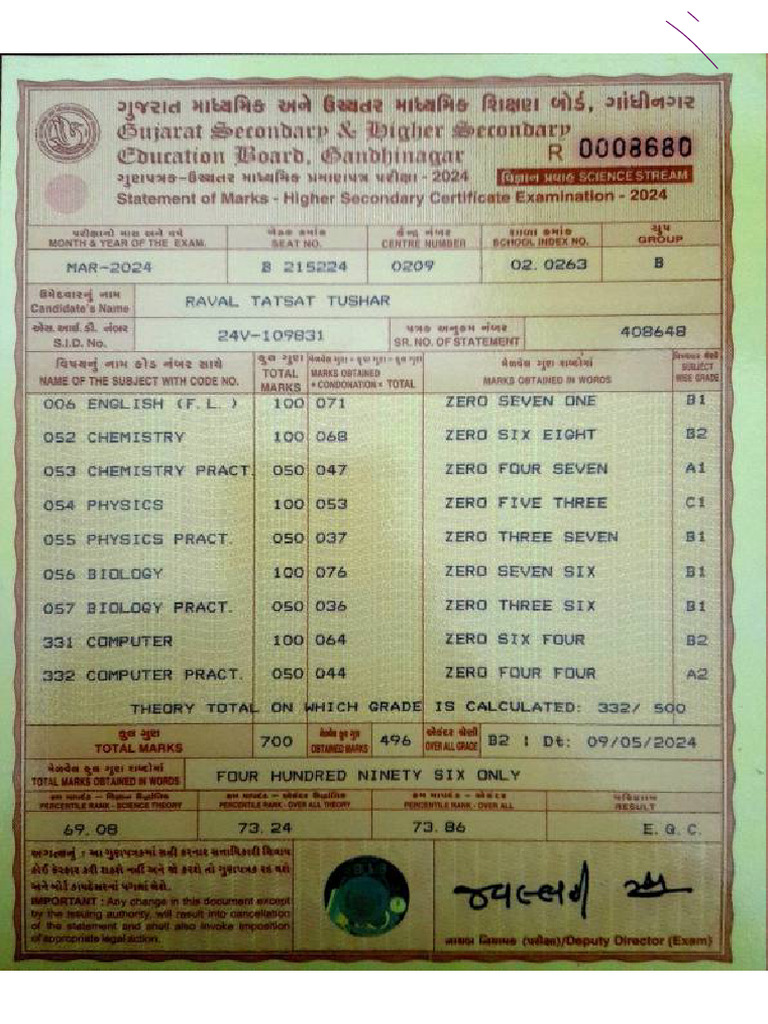 ગુજરાત માધ્યમિક અને ઉચ્ચતર માધ્યમિક શિક્ષણ બોર્ડ, ગાંધીનગર
Gujarat Secondary & Higher Secondary
Education Board, Gandhinagar
R 0008680
ગુણપત્રક-ઉચ્ચતર માધ્યમિક પ્રમાણપત્ર પરીક્ષા - 2024
વિજ્ઞાન પ્રવાહ SCIENCE STREAM
Statement of Marks - Higher Secondary Certificate Examination - 2024
પરીક્ષાનો માસ અને વર્ષ બેઠક ક્રમાંક કેન્દ્ર નંબર શાળા ક્રમાંક ગ્રુપ
MONTH & YEAR OF THE EXAM. SEAT NO. CENTRE NUMBER SCHOOL INDEX NO. GROUP
MAR-2024 B 215224 0209 02.0263 B
ઉમેદવારનું નામ
Candidate's Name RAVAL TATSAT TUSHAR
એસ.આઈ.ડી. નંબર પત્રક અનુક્રમ નંબર
S.I.D. No. 24V-109831 SR. NO. OF STATEMENT 408648
વિષયનું નામ કોડ નંબર સાથે કુલ ગુણ મેળવેલ ગુણ શબ્દોમાં
NAME OF THE SUBJECT WITH CODE NO. TOTAL MARKS MARKS OBTAINED + CONDONATION = TOTAL MARKS OBTAINED IN WORDS SUBJECT WISE GRADE
006 ENGLISH (F.L.) 100 071 ZERO SEVEN ONE B1
052 CHEMISTRY 100 068 ZERO SIX EIGHT B2
053 CHEMISTRY PRACT. 050 047 ZERO FOUR SEVEN A1
054 PHYSICS 100 053 ZERO FIVE THREE C1
055 PHYSICS PRACT. 050 037 ZERO THREE SEVEN B1
056 BIOLOGY 100 076 ZERO SEVEN SIX B1
057 BIOLOGY PRACT. 050 036 ZERO THREE SIX B1
331 COMPUTER 100 064 ZERO SIX FOUR B2
332 COMPUTER PRACT. 050 044 ZERO FOUR FOUR A2
THEORY TOTAL ON WHICH GRADE IS CALCULATED: 332/ 500
કુલ ગુણ
TOTAL MARKS 700 OBTAINED MARKS 496 OVER ALL GRADE B2 : Dt: 09/05/2024
મેળવેલ કુલ ગુણ શબ્દોમાં
TOTAL MARKS OBTAINED IN WORDS FOUR HUNDRED NINETY SIX ONLY
પરિણામ
PERCENTILE RANK - SCIENCE THEORY PERCENTILE RANK - OVER ALL THEORY PERCENTILE RANK - OVER ALL RESULT
69.08 73.24 73.86 E.Q.C.
અગત્યનું : આ ગુણપત્રકમાં સહી કરનાર સત્તાધિકારી સિવાય
કોઈ ફેરફાર કરી શકશે નહીં અને જો કરશે તો ગુણપત્રક રદ થશે
અને બોર્ડ કાયદેસરનાં પગલાં લેશે.
IMPORTANT : Any change in this document except
by the issuing authority, will result into cancellation
of the statement and shall also invoke imposition
of appropriate legal action.
નાયબ નિયામક (પરીક્ષા)/Deputy Director (Exam)